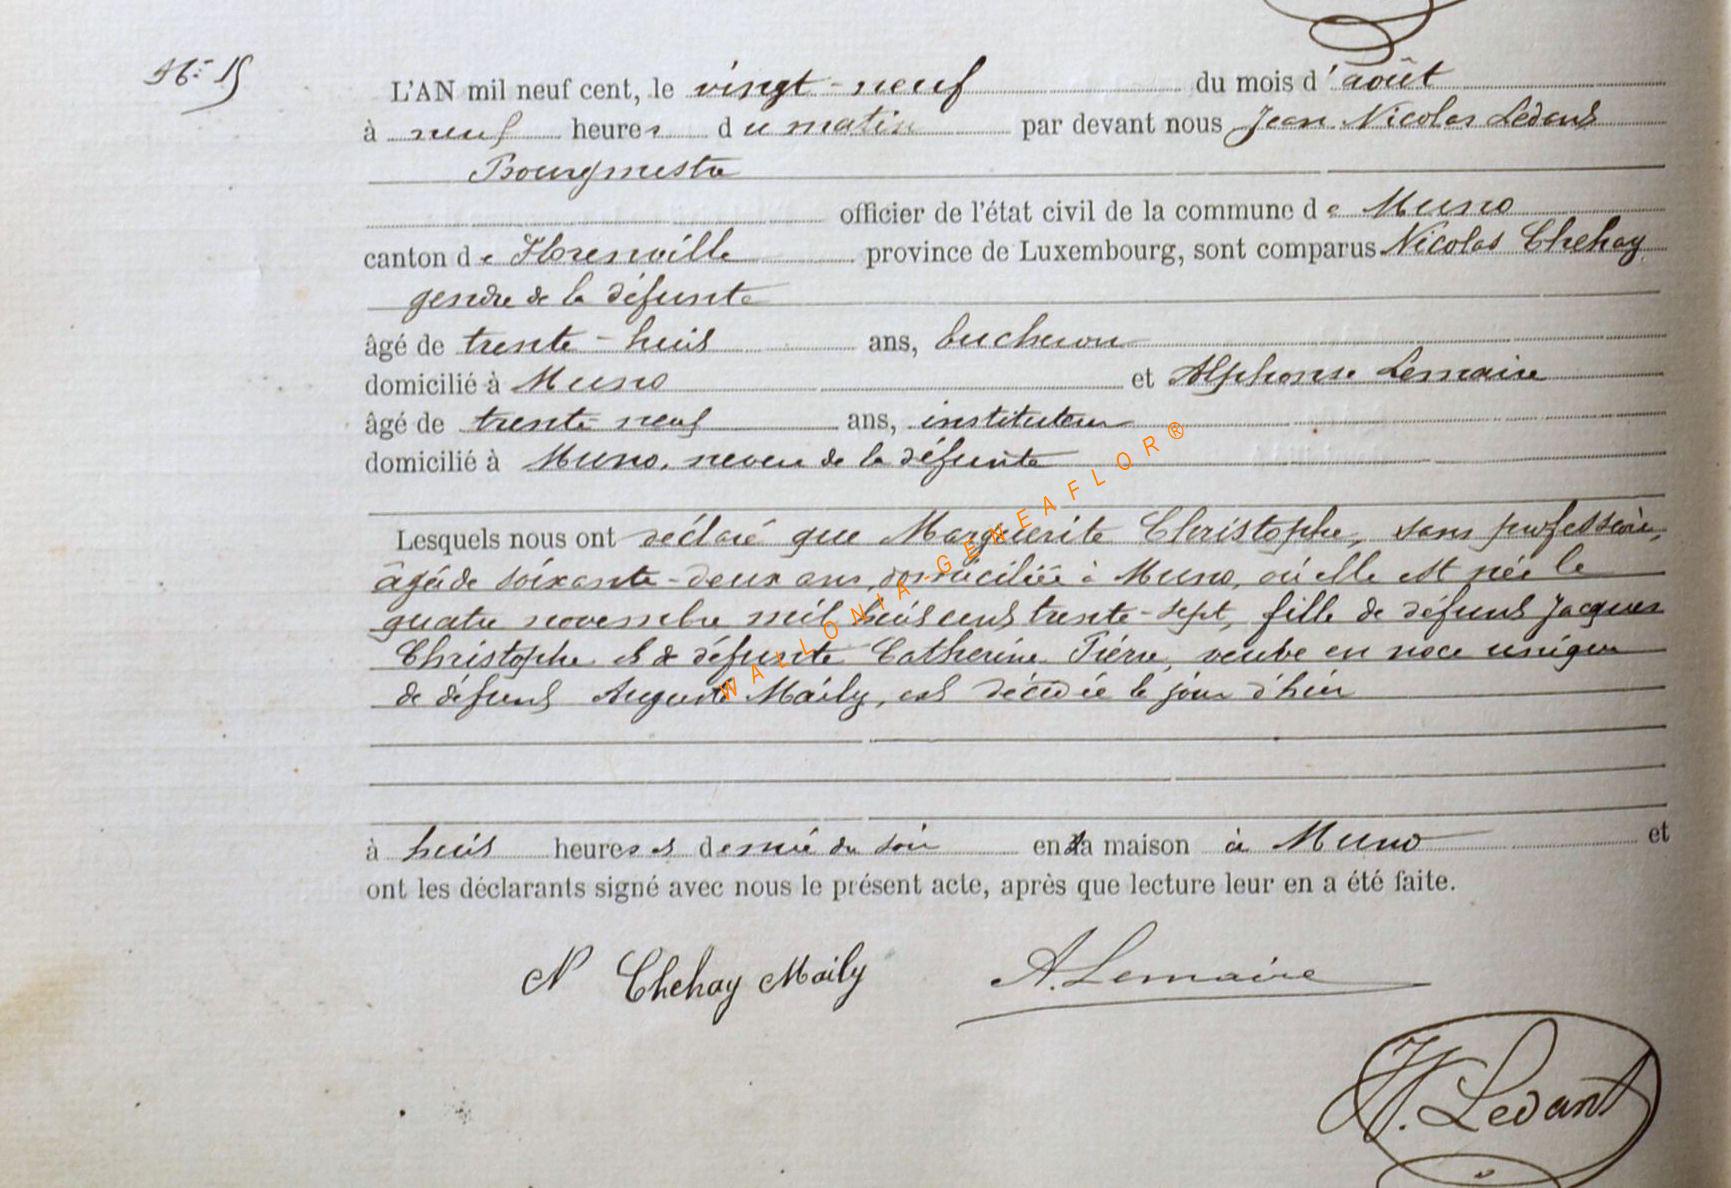 N° 15
L'AN mil neuf cent, le vingt-neuf du mois d'août
à neuf heures du matin par devant nous Jean Nicolas Ledant
Bourgmestre
officier de l'état civil de la commune de Muno
canton de Florenville province de Luxembourg, sont comparus Nicolas Chehay
gendre de la défunte
âgé de trente-huit ans, bucheron
domicilié à Muno et Alphonse Lemaire
âgé de trente-neuf ans, instituteur
domicilié à Muno, neveu de la défunte
Lesquels nous ont déclaré que Marguerite Christophe, sans profession,
âgée de soixante-deux ans, domiciliée à Muno, où elle est née le
quatre novembre mil huit cent trente-sept, fille de défunt Jacques
Christophe et de défunte Catherine Pierre, veuve en noce unique
de défunt Auguste Maily, est décédée le jour d'hier
à huit heures et demie du soir en sa maison à Muno et
ont les déclarants signé avec nous le présent acte, après que lecture leur en a été faite.
N Chehay Maily A. Lemaire
JN. Ledant
WALLONIA-GENEAFLOR®